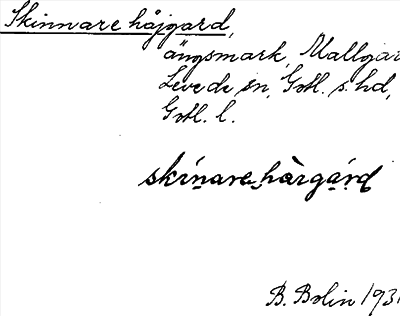 Skinnare håjgard,
ängsmark, Mallgar
Levede sn, Gotl. s. hd,
Gotl. l.
skinare hàrgárd
B. Bolin 193